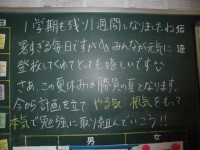 1学期も残り1週間となりましたね
伝
暑すぎる毎日ですが、みんなが元気に
達
登校してくれてとても嬉しいです
さあ、この夏休みは勝負の夏となります。
今から計画を立て やる気 根気をもって
本気で勉強に取り組んでいこう!!
男 女